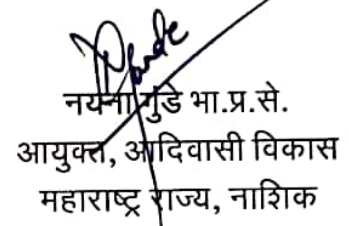 नयना गुंडे भा.प्र.से.
आयुक्त, आदिवासी विकास
महाराष्ट्र राज्य, नाशिक